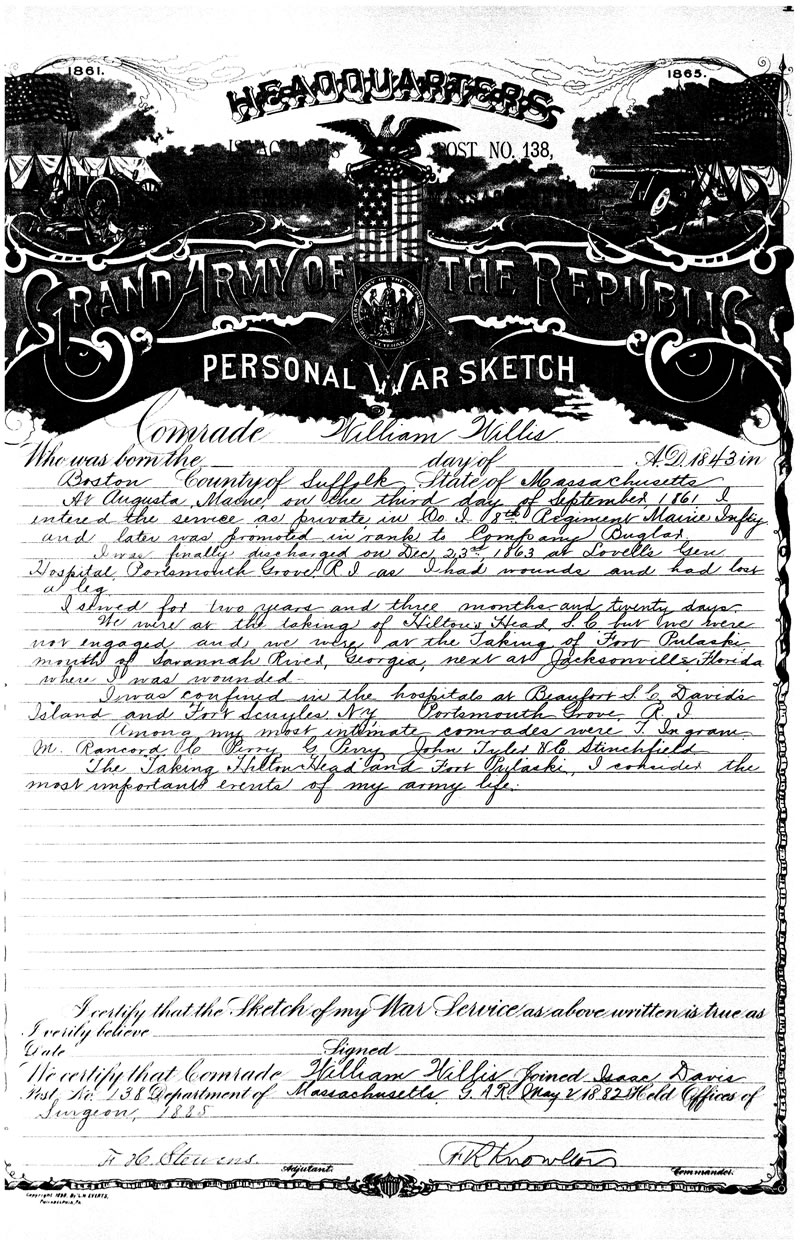 1861.
1865.
HEADQUARTERS
ISAAC DAVIS POST NO. 138,
GRAND ARMY OF THE REPUBLIC
GRAND ARMY OF THE REPUBLIC
VETERAN
PERSONAL WAR SKETCH
Comrade William Willis
Who was born the day of A.D. 1843 in
Boston County of Suffolk State of Massachusetts
At Augusta, Maine, on the third day of September 1861 I
entered the service as private, in Co. I. 8th Regiment Maine Infty
and later was promoted in rank to Company Buglar.
I was finally discharged on Dec. 23rd 1863 at Lovells Gen
Hospital, Portsmouth Grove, R I as I had wounds and had lost
a leg
I served for two years and three months and twenty days.
We were at the taking of Hilton's Head, S. C but we were
not engaged and we were at the Taking of Fort Pulaski
mouth of Savannah River, Georgia, next at Jacksonville Florida
where I was wounded.
I was confined in the hospitals at Beaufort S. C, David's
Island and Fort Scuyles N.Y. Portsmouth Grove, R. I
Among my most intimate comrades were T. Ingram.
M. Rancord C Perry, G Perry John Tyler & C Stinchfield
The Taking Hilton Head and Fort Pulaski, I consider the
most important events of my army life.
I certify that the Sketch of my War Service as above written is true as
I verily believe
Date Signed
We certify that Comrade William Willis Joined Isaac Davis
Post No. 138 Department of Massachusetts G.A.R. May 2 1882 Held Offices of
Surgeon, 1885
F. H. Stevens. Adjutant. F R Knowlton Commander.
Copyright 1890. By L.H. EVERTS,
Philadelphia, Pa.